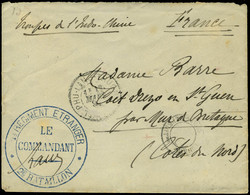 Troupes de l'Indo-Chine
France
Madame Barre
St Guen
par Mur de Bretagne
(Côtes du Nord)
RÉGIMENT ETRANGER
LE
COMMANDANT
BATAILLON